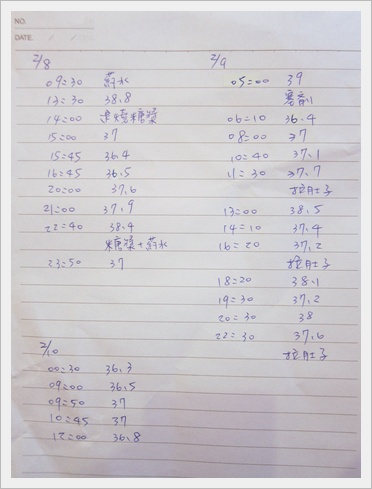 NO.
DATE.
2/8
09:30 藥水
13:30 38.8
14:00 退燒糖漿
15:00 37
15:45 36.4
16:45 36.5
20:00 37.6
21:00 37.9
22:40 38.4
糖漿+藥水
23:50 37
2/9
05:00 39
塞劑
06:10 36.4
08:00 37
10:40 37.1
11:30 37.7
拉肚子
13:00 38.5
14:10 37.4
16:20 37.2
拉肚子
18:20 38.1
19:30 37.2
20:30 38
22:30 37.6
拉肚子
2/10
00:30 36.3
09:00 36.5
09:50 37
10:45 37
12:00 36.8